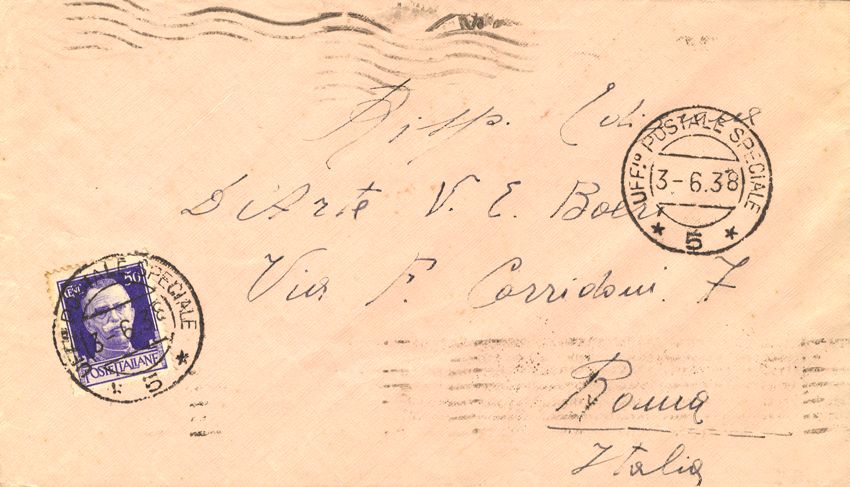 Risp. Edi
D'Arte V. E. Boeri
Via F. Corridoni. 7
Roma
Italia
UFF.º POSTALE SPECIALE
3-6.38
* 5 *
CENT. 50
POSTE ITALIANE
POSTALE SPECIALE
3-6.38
5 *